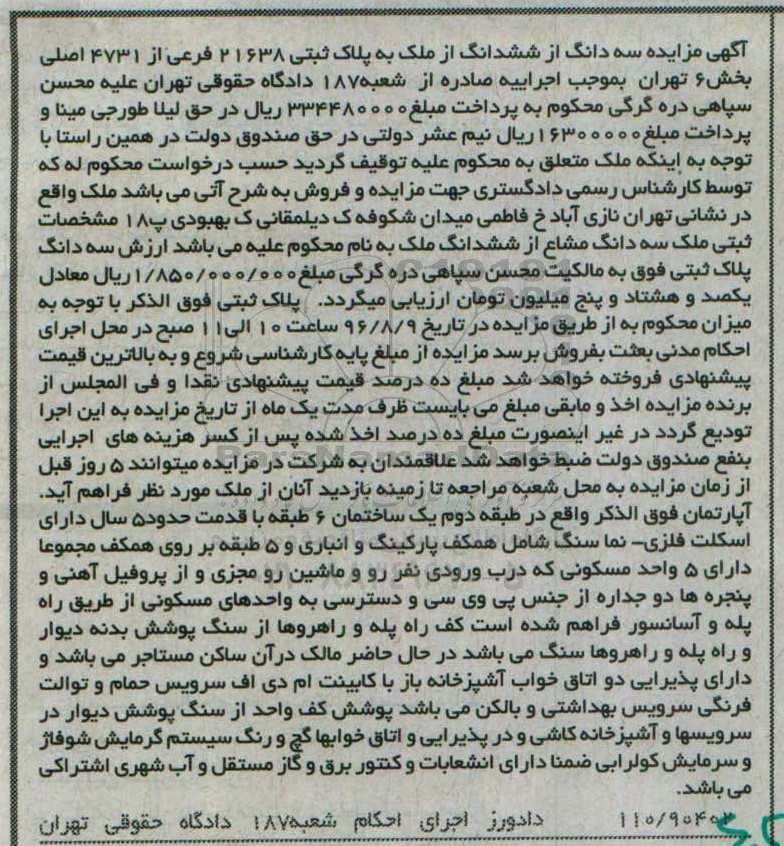 آگهی مزایده سه دانگ از ششدانگ از ملک به پلاک ثبتی ۲۱۶۳۸ فرعی از ۴۷۳۱ اصلی
بخش۶ تهران بموجب اجراییه صادره از شعبه۱۸۷ دادگاه حقوقی تهران علیه محسن
سپاهی دره گرگی محکوم به پرداخت مبلغ۳۳۴۴۸۰۰۰۰ ریال در حق لیلا طورجی مینا و
پرداخت مبلغ۱۶۳۰۰۰۰۰ریال نیم عشر دولتی در حق صندوق دولت در همین راستا با
توجه به اینکه ملک متعلق به محکوم علیه توقیف گردید حسب درخواست محکوم له که
توسط کارشناس رسمی دادگستری جهت مزایده و فروش به شرح آتی می باشد ملک واقع
در نشانی تهران نازی آباد خ فاطمی میدان شکوفه ک دیلمقانی ک بهبودی پ۱۸ مشخصات
ثبتی ملک سه دانگ مشاع از ششدانگ ملک به نام محکوم علیه می باشد ارزش سه دانگ
پلاک ثبتی فوق به مالکیت محسن سپاهی دره گرگی مبلغ۱/۸۵۰/۰۰۰/۰۰۰ریال معادل
یکصد و هشتاد و پنج میلیون تومان ارزیابی میگردد. پلاک ثبتی فوق الذکر با توجه به
میزان محکوم به از طریق مزایده در تاریخ ۹۶/۸/۹ ساعت ۱۰ الی۱۱ صبح در محل اجرای
احکام مدنی بعثت بفروش برسد مزایده از مبلغ پایه کارشناسی شروع و به بالاترین قیمت
پیشنهادی فروخته خواهد شد مبلغ ده درصد قیمت پیشنهادی نقدا و فی المجلس از
برنده مزایده اخذ و مابقی مبلغ می بایست ظرف مدت یک ماه از تاریخ مزایده به این اجرا
تودیع گردد در غیر اینصورت مبلغ ده درصد اخذ شده پس از کسر هزینه های اجرایی
بنفع صندوق دولت ضبط خواهد شد علاقمندان به شرکت در مزایده میتوانند ۵ روز قبل
از زمان مزایده به محل شعبه مراجعه تا زمینه بازدید آنان از ملک مورد نظر فراهم آید.
آپارتمان فوق الذکر واقع در طبقه دوم یک ساختمان ۶ طبقه با قدمت حدود۵ سال دارای
اسکلت فلزی– نما سنگ شامل همکف پارکینگ و انباری و ۵ طبقه بر روی همکف مجموعا
دارای ۵ واحد مسکونی که درب ورودی نفر رو و ماشین رو مجزی و از پروفیل آهنی و
پنجره ها دو جداره از جنس پی وی سی و دسترسی به واحدهای مسکونی از طریق راه
پله و آسانسور فراهم شده است کف راه پله و راهروها از سنگ پوشش بدنه دیوار
و راه پله و راهروها سنگ می باشد در حال حاضر مالک درآن ساکن مستاجر می باشد و
دارای پذیرایی دو اتاق خواب آشپزخانه باز با کابینت ام دی اف سرویس حمام و توالت
فرنگی سرویس بهداشتی و بالکن می باشد پوشش کف واحد از سنگ پوشش دیوار در
سرویسها و آشپزخانه کاشی و در پذیرایی و اتاق خوابها گچ و رنگ سیستم گرمایش شوفاژ
و سرمایش کولرابی ضمنا دارای انشعابات و کنتور برق و گاز مستقل و آب شهری اشتراکی
می باشد.
۱۱۰/۹۰۴۰۲ دادورز اجرای احکام شعبه۱۸۷ دادگاه حقوقی تهران
ParsNamadData